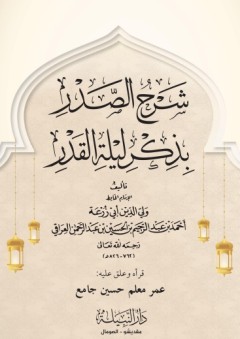 شرح الصدر
بذكر ليلة القدر
تأليف
الإمام الحافظ
ولي الدين أبي زرعة
أحمد بن عبد الرحيم بن الحسين بن عبد الرحمن العراقي
رحمه الله تعالى
(٧٦٢-٨٢٦هـ)
قرأه وعلق عليه:
عمر معلم حسين جامع
دار النبيلة
مقديشو - الصومال